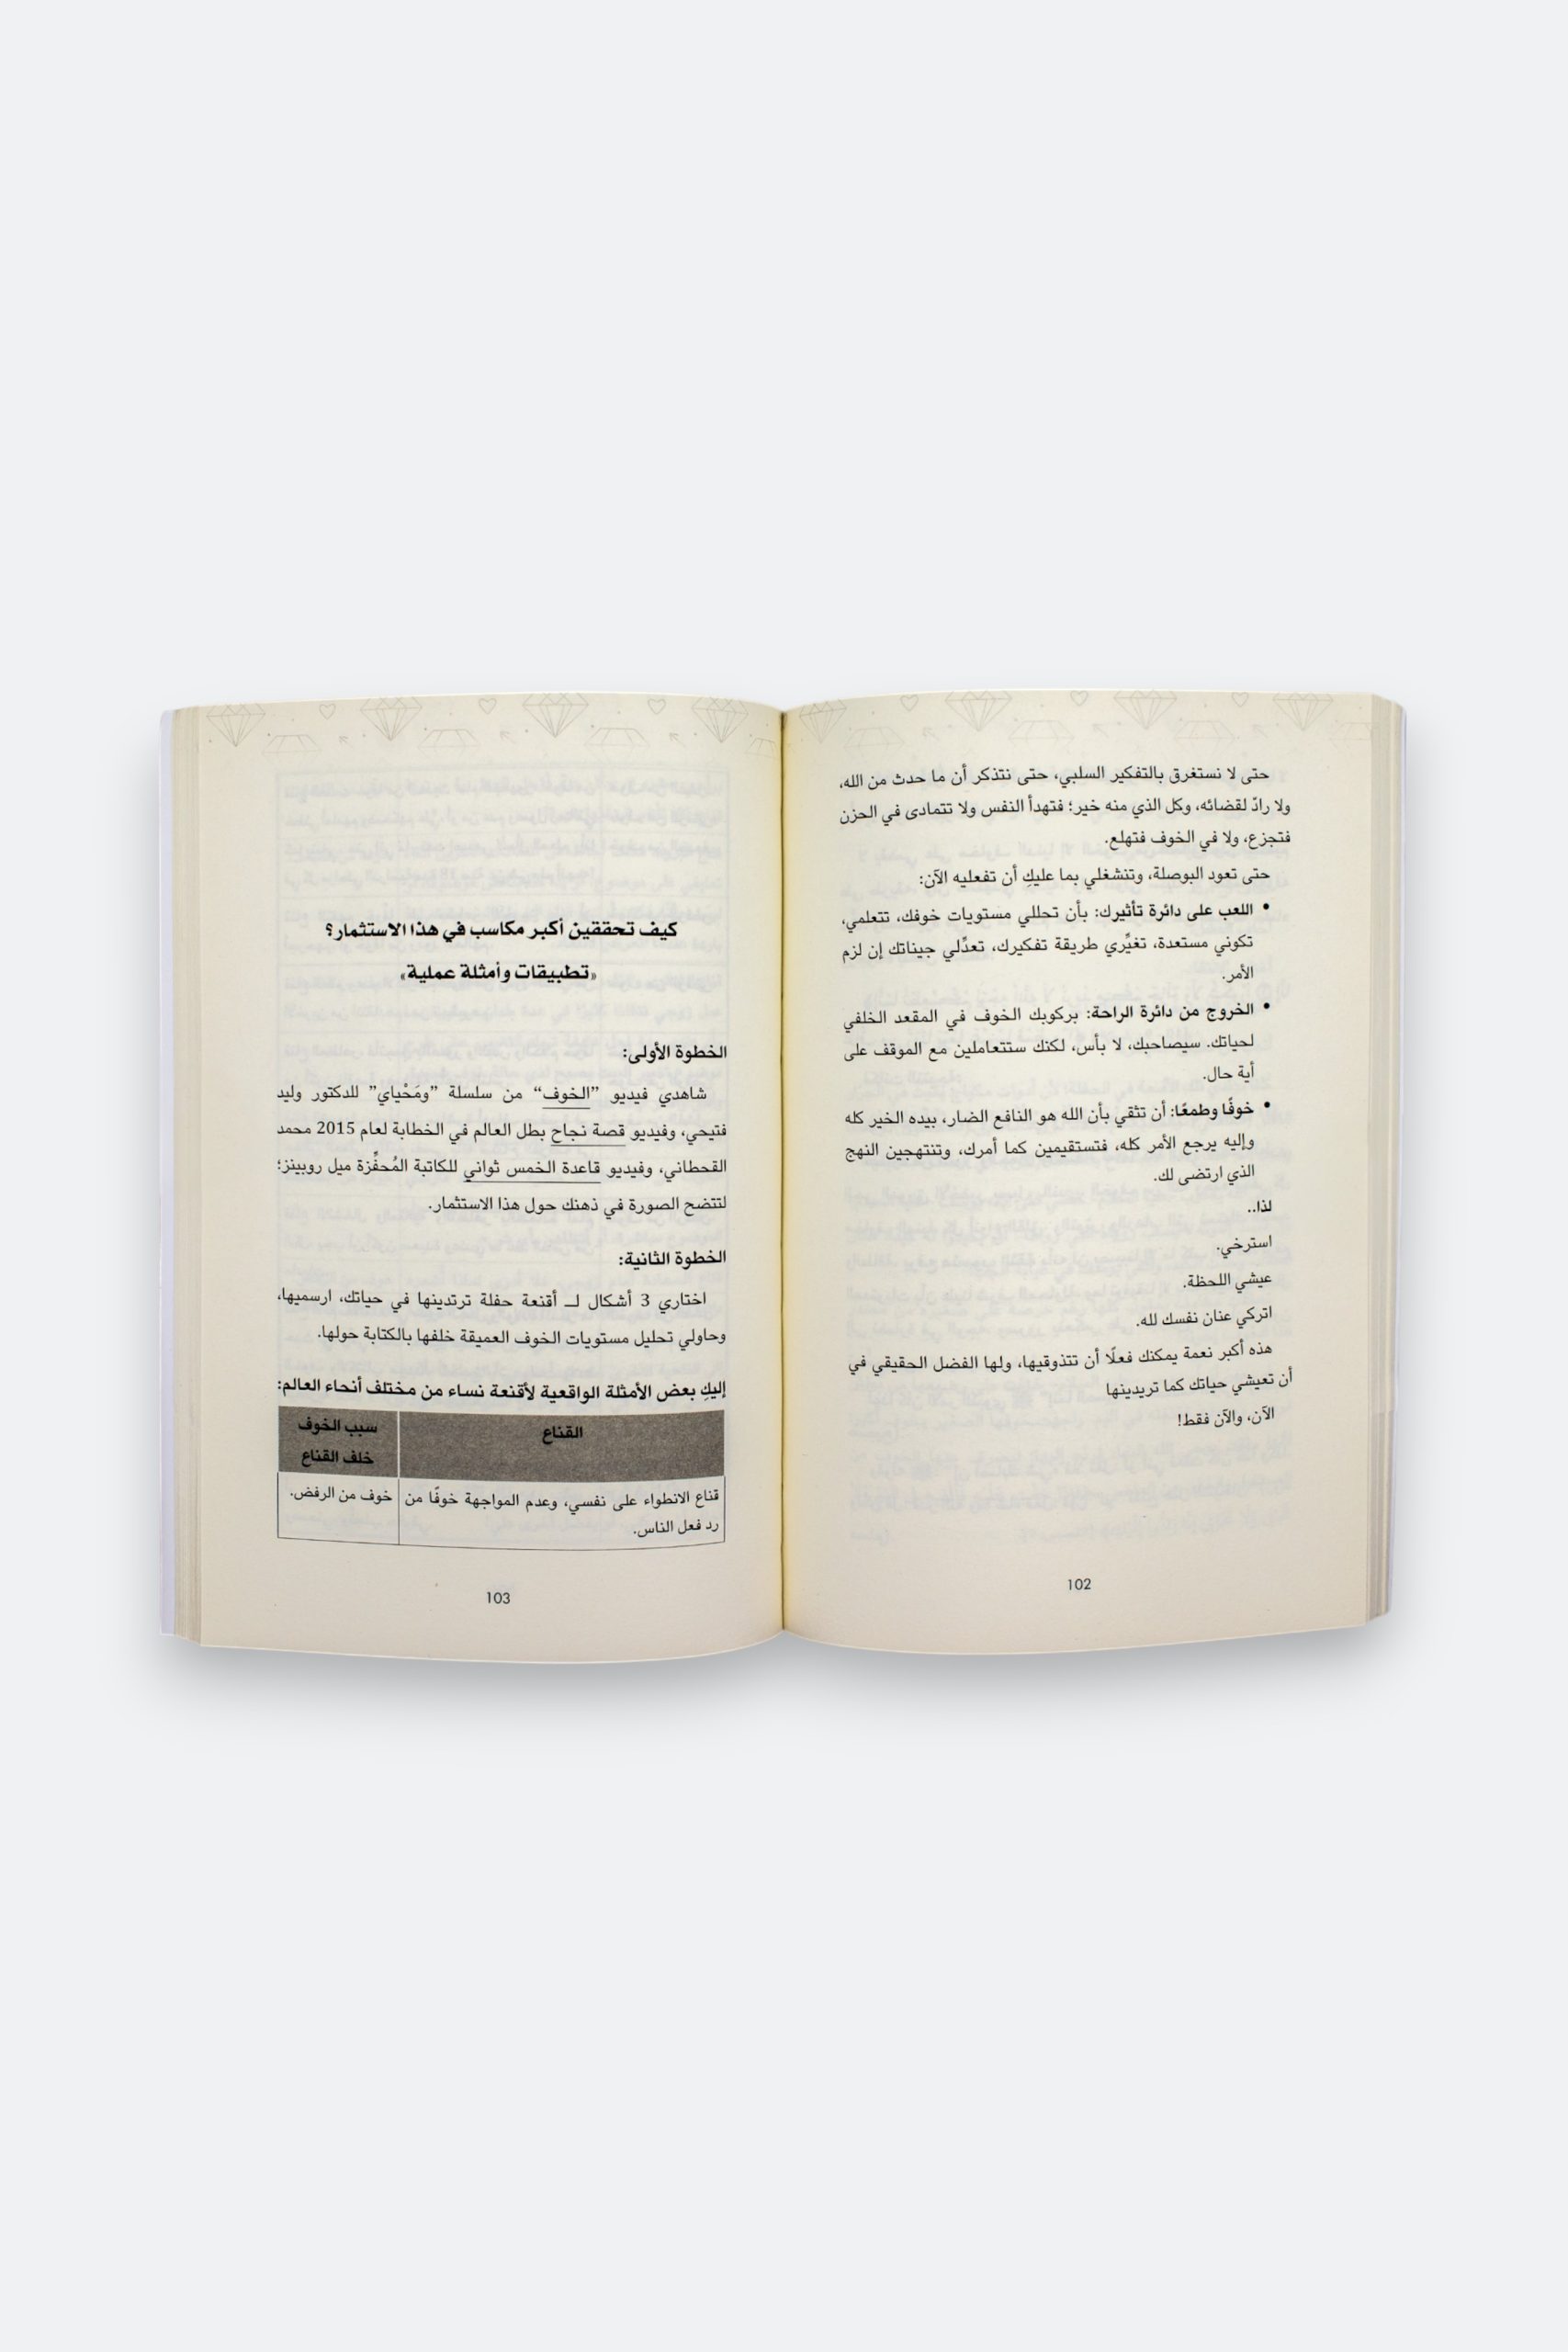 حتى لا نستغرق بالتفكير السلبي، حتى نتذكر أن ما حدث من الله،
ولا رادّ لقضائه، وكل الذي منه خير؛ فتهدأ النفس ولا تتمادى في الحزن
فتجزع، ولا في الخوف فتهلع.
حتى تعود البوصلة، وتنشغلي بما عليكِ أن تفعليه الآن:
• اللعب على دائرة تأثيرك: بأن تحللي مستويات خوفك، تتعلمي،
تكوني مستعدة، تغيِّري طريقة تفكيرك، تعدِّلي جيناتك إن لزم
الأمر.
• الخروج من دائرة الراحة: بركوبك الخوف في المقعد الخلفي
لحياتك. سيصاحبك، لا بأس، لكنك ستتعاملين مع الموقف على
أية حال.
• خوفًا وطمعًا: أن تثقي بأن الله هو النافع الضار، بيده الخير كله
وإليه يرجع الأمر كله، فتستقيمين كما أمرك، وتنتهجين النهج
الذي ارتضى لك.
لذا..
استرخي.
عيشي اللحظة.
اتركي عنان نفسك لله.
هذه أكبر نعمة يمكنك فعلًا أن تتذوقيها، ولها الفضل الحقيقي في
أن تعيشي حياتك كما تريدينها
الآن، والآن فقط!
102
كيف تحققين أكبر مكاسب في هذا الاستثمار؟
«تطبيقات وأمثلة عملية»
الخطوة الأولى:
شاهدي فيديو ”الخوف“ من سلسلة ”ومَحْياي” للدكتور وليد
فتيحي، وفيديو قصة نجاح بطل العالم في الخطابة لعام 2015 محمد
القحطاني، وفيديو قاعدة الخمس ثواني للكاتبة المُحفِّزة ميل روبينز؛
لتتضح الصورة في ذهنك حول هذا الاستثمار.
الخطوة الثانية:
اختاري 3 أشكال لـ أقنعة حفلة ترتدينها في حياتك، ارسميها،
وحاولي تحليل مستويات الخوف العميقة خلفها بالكتابة حولها.
إليكِ بعض الأمثلة الواقعية لأقنعة نساء من مختلف أنحاء العالم:
القناع
سبب الخوف
خلف القناع
قناع الانطواء على نفسي، وعدم المواجهة خوفًا من
رد فعل الناس.
خوف من الرفض.
103